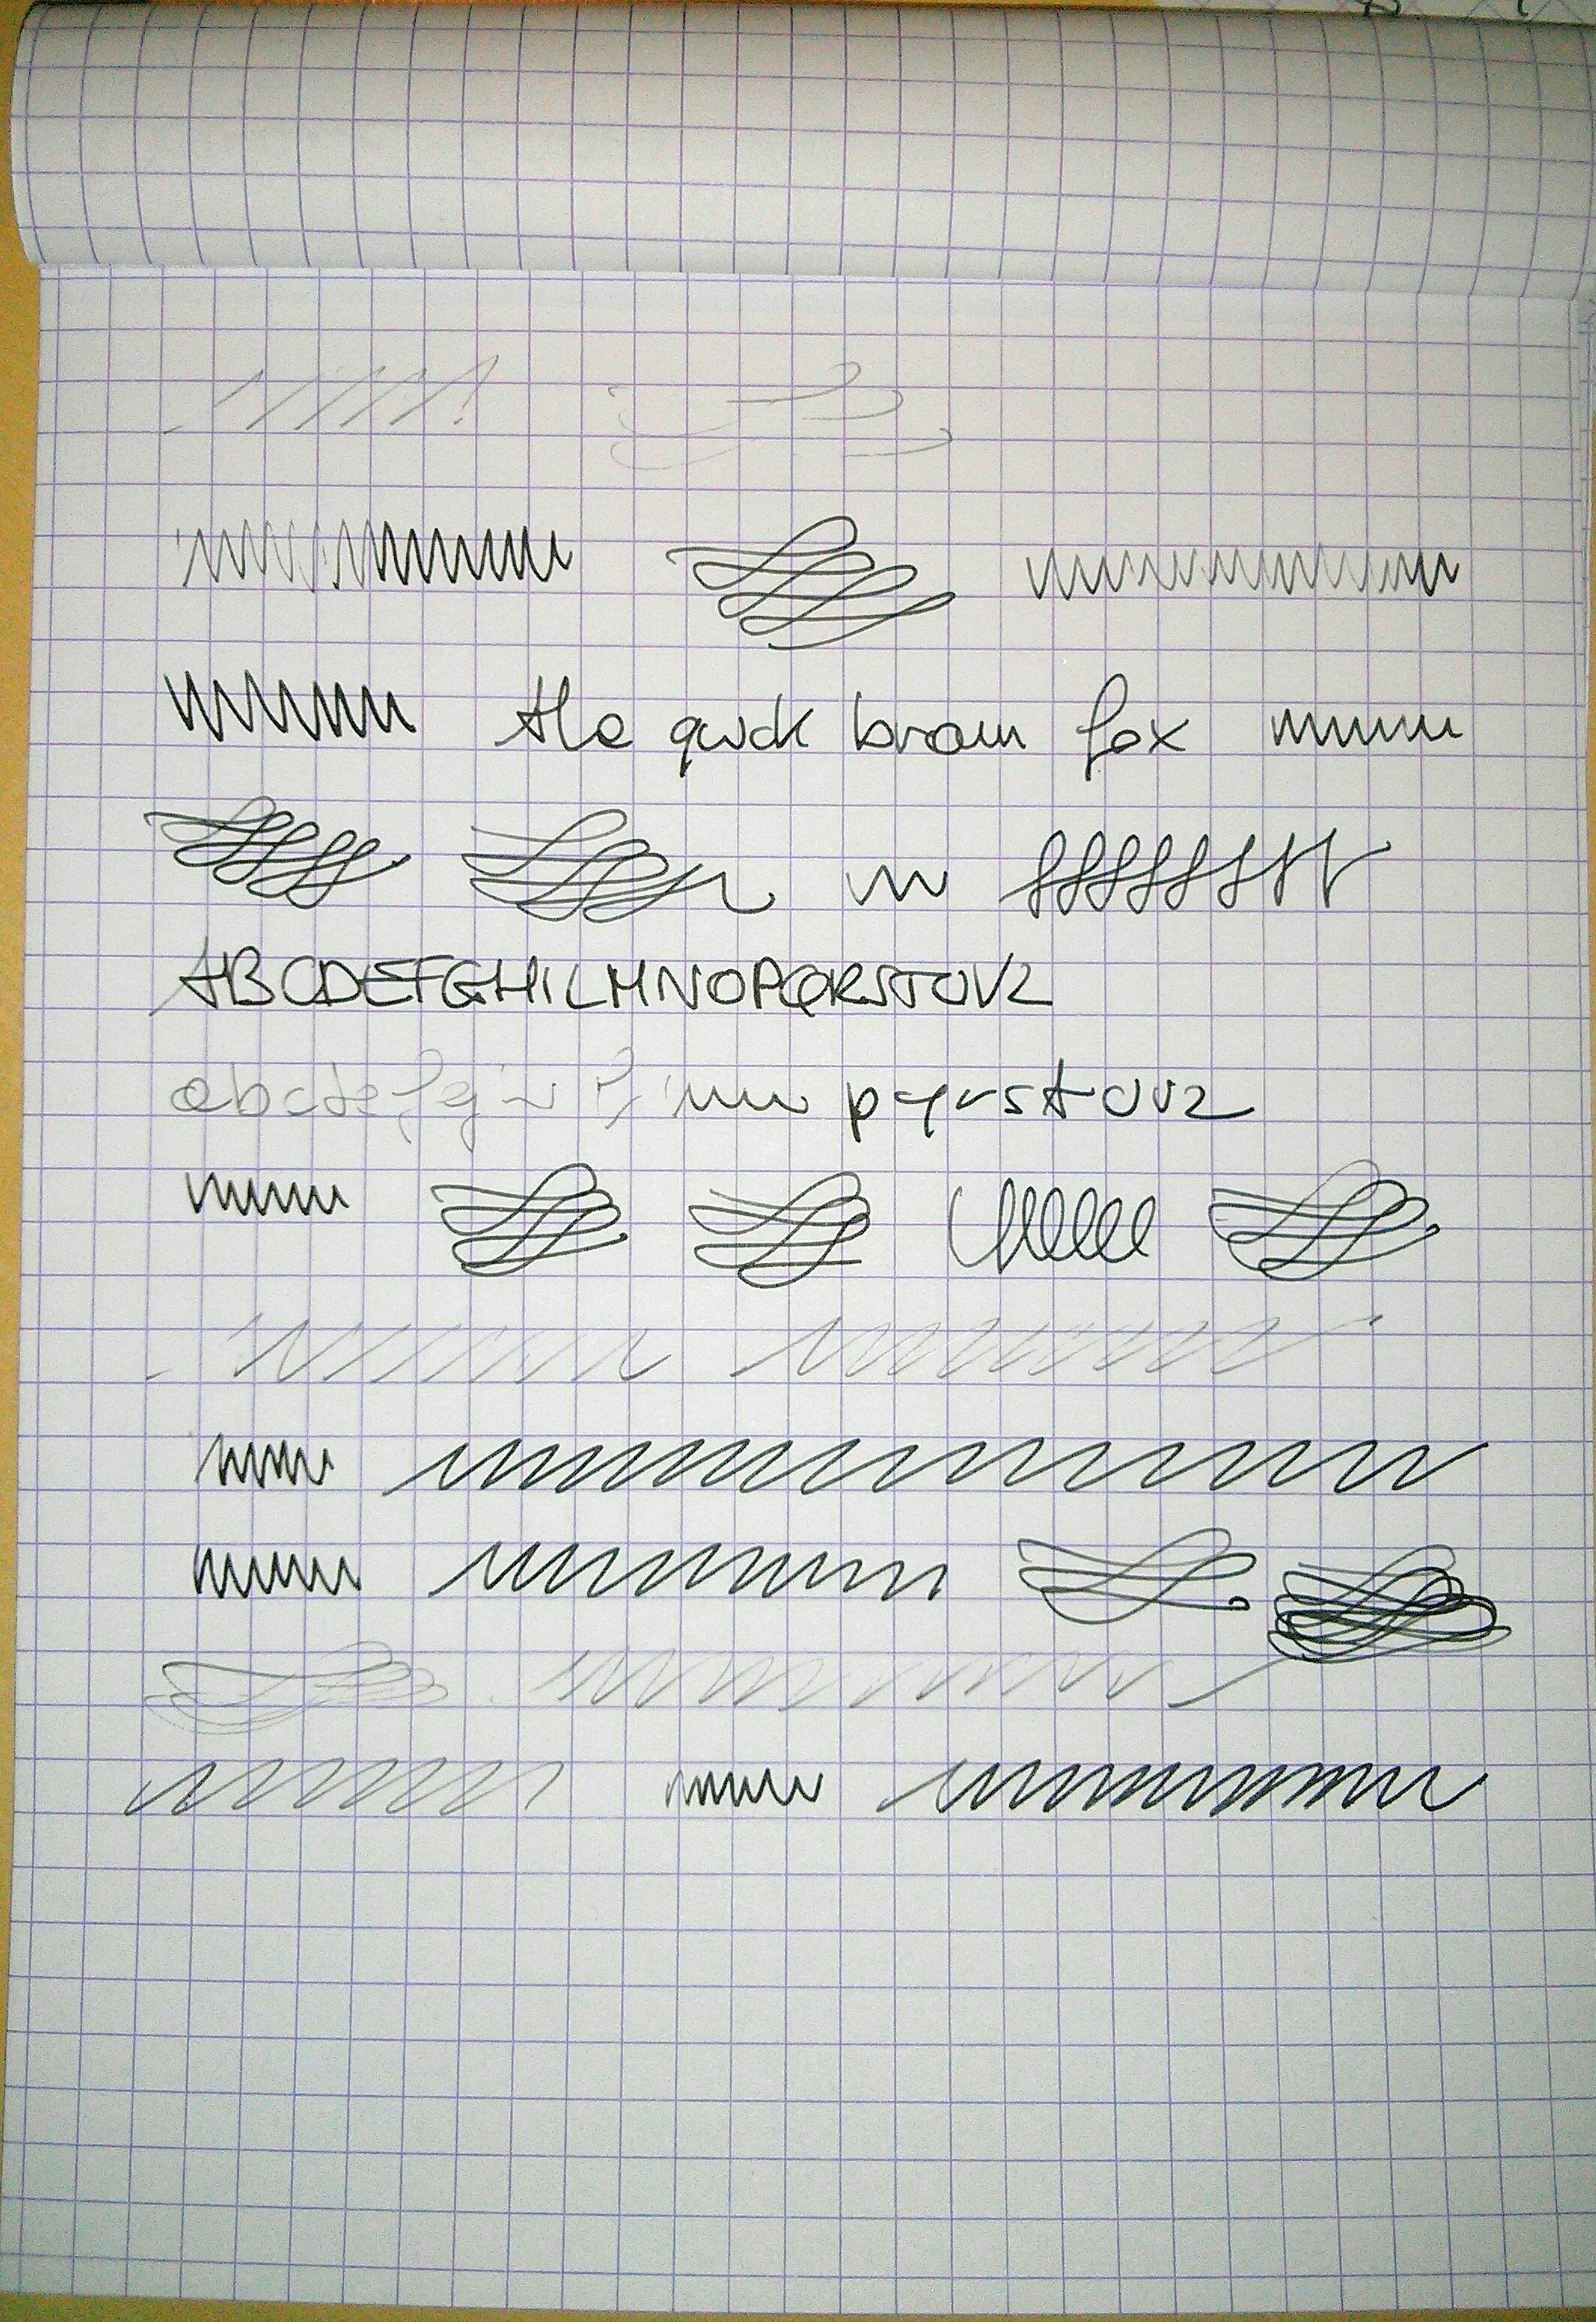 the quick brown fox
ABCDEFGHILMNOPQRSTUVZ
abcdefg
pqrstuvz